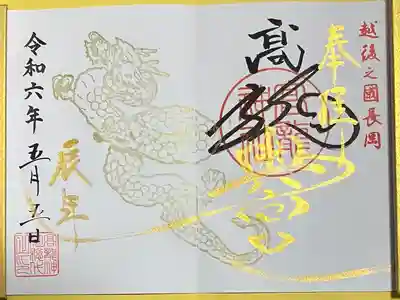 越後之國長岡
奉拝
高龍
高龍
神社
辰年
令和六年 五月五日